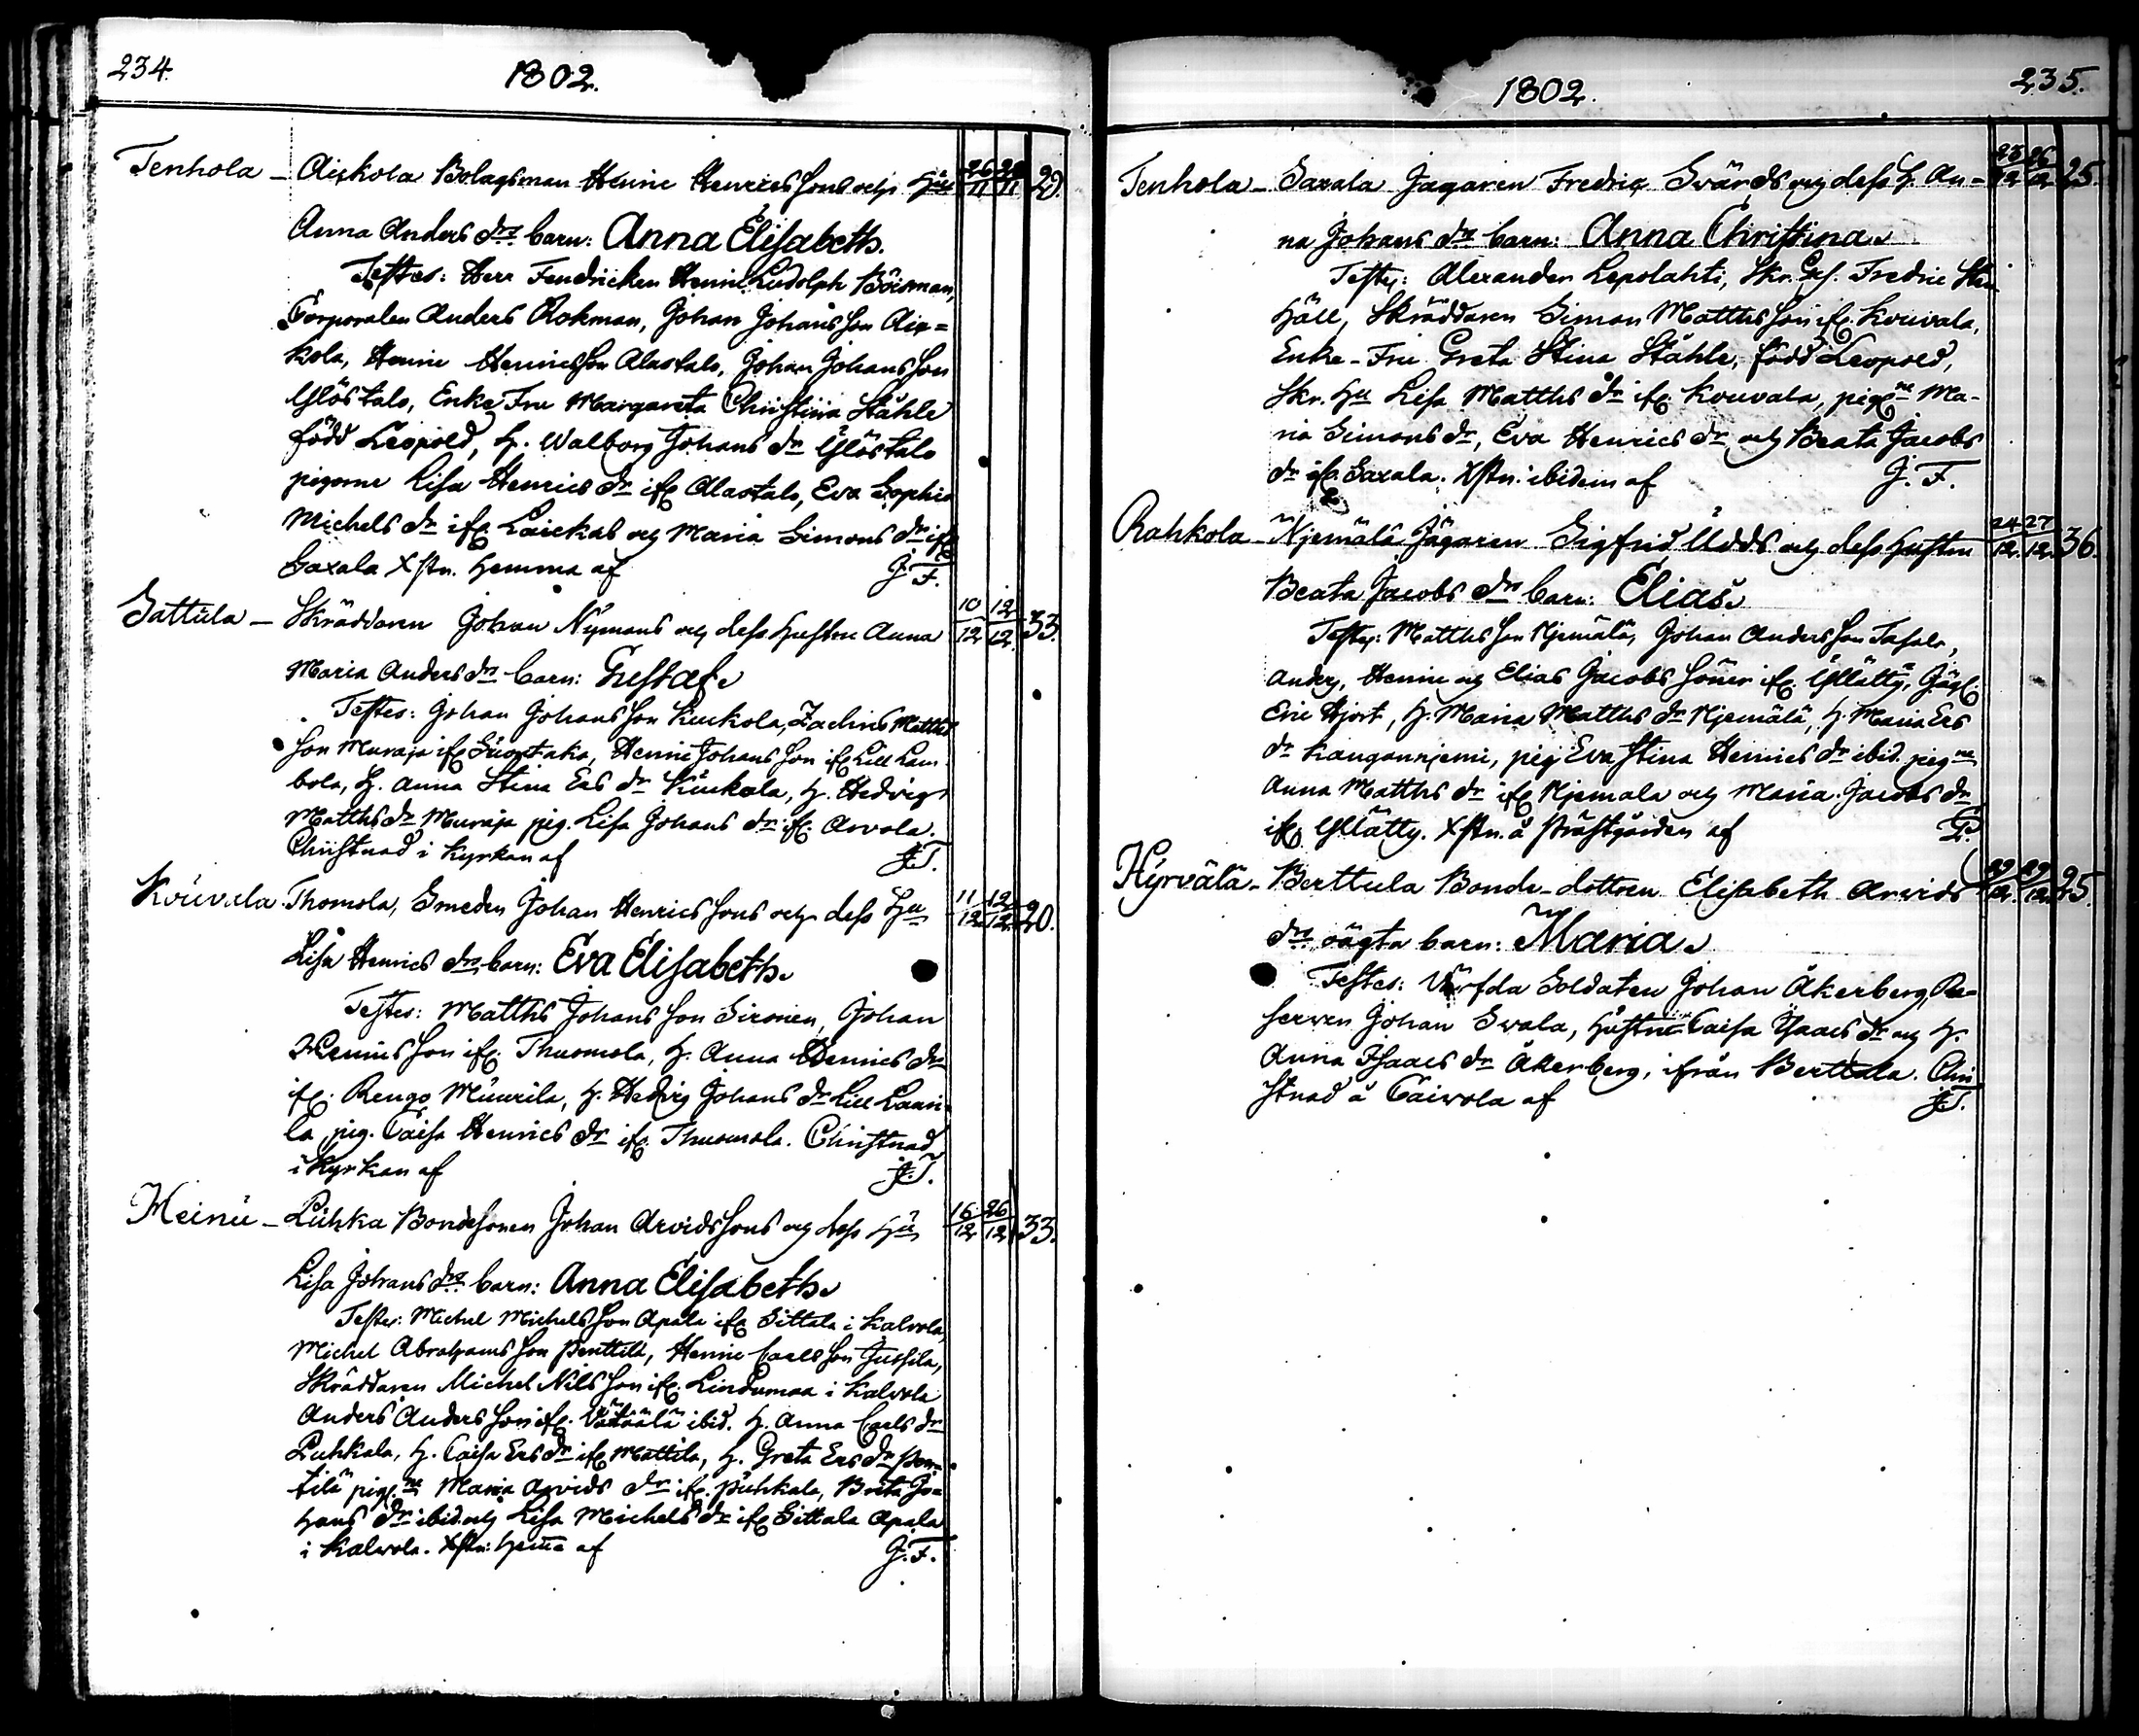 234.
1802.
Tenhola – Aixkola Bolagsman Henric Henrics Sons och H:u 26/11 28/11 29.
Anna Anders drs barn: Anna Elisabeth.
Testes: Herr Fendricken Henric Ludolph Böisman,
Corporalen Anders Rokman, Johan Johans Son Aix=
kola, Henric Henrics Son Alastalo, Johan Johans Son
Ylöstalo, Enke Fru Margareta Christina Ståhle
född Leopold, H. Walborg Johans dr Ylöstalo
pigorne Lisa Henrics dr ifr. Alastalo, Eva Sophia
Michels dr ifr. Laickas och Maria Simons dr ifr.
Saxala Xstn. hemma af J. F.
Sattula – Skräddaren Johan Nymans och dess Hustru Anna 10/12 12/12 33.
Maria Anders drs barn: Gustaf.
Testes: Johan Johans Son Kuckola, Zachris Matths
Son Muraja ifr. Suontaka, Henric Johans Son ifr. Lill Lam
bola, H. Anna Stina Ers dr Kuckola, H. Hedvig
Matths dr Muraja pig. Lisa Johans dr ifr. Arvola.
Christnad i Kyrkan af J.T.
Kouvala Thomola, Smeden Johan Henrics Sons och dess H:u 11/12 12/12 20.
Lisa Henrics drs barn: Eva Elisabeth.
Testes: Matths Johans Son Sironen, Johan
Henrics Son ifr. Thuomola, H. Anna Henrics dr
ifr. Rengo Muurila, H. Hedvig Johans dr Lill Lauri
la pig. Caisa Henrics dr ifr. Thuomola. Christnad
i Kyrkan af J.T.
Heinu – Luhka Bondesonen Johan Arvids Sons och dess H:u 16/12 26/12 33.
Lisa Johans drs barn: Anna Elisabeth.
Testes: Michel Michels Son Apala ifr. Sittala i Kalvola,
Michel Abrahams Son Penttilä, Henric Carls Son Jussila,
Skräddaren Michel Nils Son ifr. Lindumaa i Kalvola
Anders Anders Son ifr. ibid. H. Anna Carls dr
Puhkala, H. Caisa Ers dr ifr. Mattila, H. Greta Ers dr Pen=
tilä pig:ne Maria Arvids dr ifr. Puhkala, Brita Jo=
hans dr ibid. och Lisa Michels dr ifr. Sittala Apala
i Kalvola. Xstn. hema af J. F.
1802.
235.
Tenhola – Saxala Jägaren Fredric Svärds och dess H. An= 23/12 26/12 25.
na Johans drs barn: Anna Christina.
Testes: Alexander Lepolahti, Skr. Ges. Fredric Sten
häll, Skräddaren Simon Matths Son ifr. Kouvala,
Enke-Fru Greta Stina Ståhle, född Leopold,
Skr. H:u Lisa Matths dr ifr. Kouvala, pig:ne Ma-
ria Simons dr, Eva Henrics dr och Beata Jacobs
dr ifr. Saxala. Xstn. ibidem af J. F.
Rahkola – Njemälä Jägaren Sigfrid Udds och dess Hustru 24/12 27/12 36.
Beata Jacobs drs barn: Elias.
Testes: Matths Son Njemälä, Johan Anders Son
Anders, Henric och Elias Jacobs Söner ifr. Yllätty, Jäg.
Eric Hjort, H. Maria Matths dr Njemälä, H. Maria Ers
dr Kangannjemi, pig. Eva Stina Henrics dr ibid. pig:ne
Anna Matths dr ifr. Njemälä och Maria Jacobs dr
ifr. Yllätty. Xstn. å Prästgården af
Hyrvälä – Berttula Bonde-dottren Elisabeth Arvids 29/12 29/12 25.
drs oägta barn: Maria.
Testes: Värfda Soldaten Johan Åkerberg, Re-
serven Johan Svala, Hustrur Caisa Isaacs dr och H.
Anna Isaacs dr Åkerberg, ifrån Berttula. Chri
stnad å Caivola af J.T.